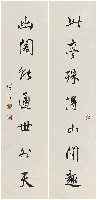 此亭殊得山間趣
幽閣能通世外天